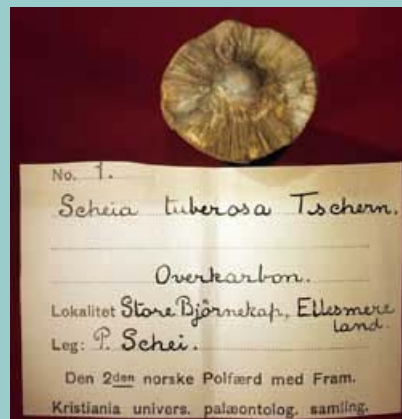 No. 1.
Scheia tuberosa Tschern.
Overkarbon.
Lokalitet Store Björnekap, Ellesmere
land.
Leg: P. Schei.
Den 2den norske Polfærd med Fram.
Kristiania univers. palæontolog. samling.